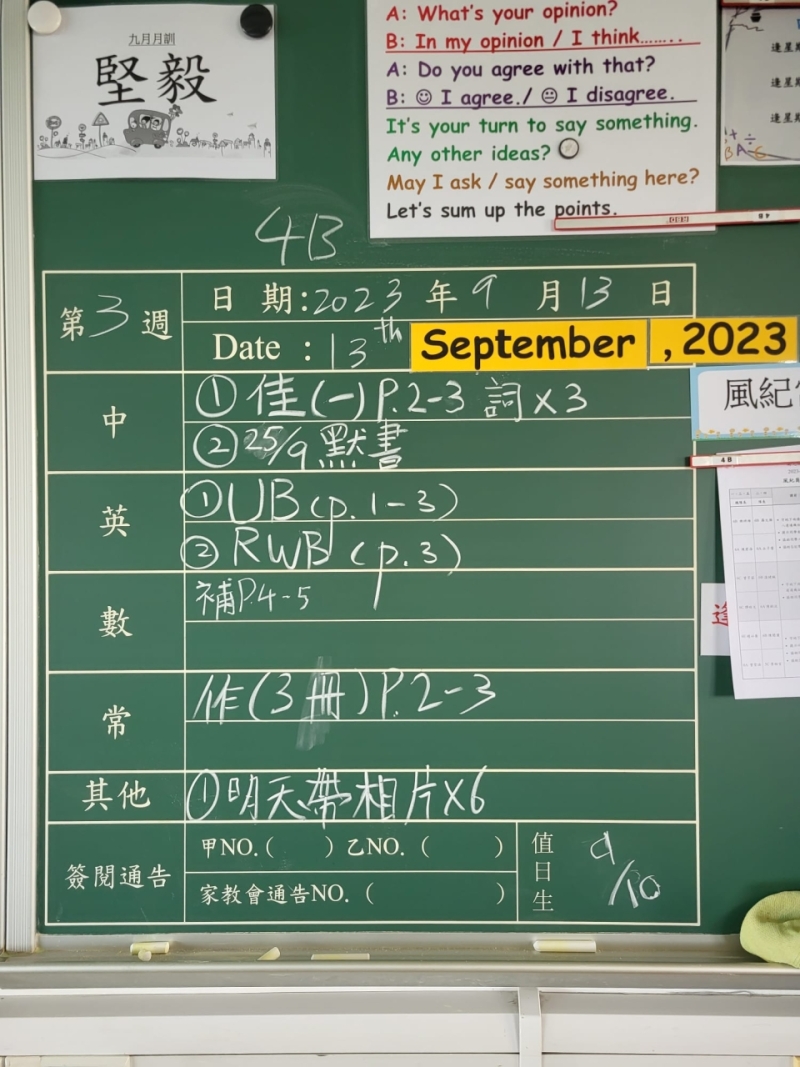 九月月訓
堅毅
A: What's your opinion?
B: In my opinion / I think........
A: Do you agree with that?
B: ☺ I agree./ 😐 I disagree.
It's your turn to say something.
Any other ideas?
May I ask / say something here?
Let's sum up the points.
逢星期
逢星期
逢星期
4B
第3週
日 期:2023 年 9 月 13 日
Date : 13th September , 2023
中
①佳(一)P.2-3 詞x3
②25/9默書
英
①UB(p.1-3)
②RWB (p.3)
數
補P.4-5
常
作(3冊)P.2-3
其他
①明天帶相片x6
簽閱通告
甲NO.( ) 乙NO. ( )
家教會通告NO. ( )
值日生
9/10
風紀
4 B
逢